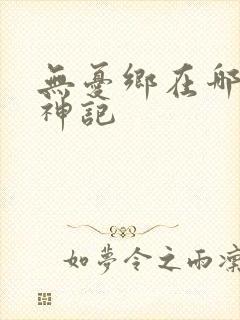 無憂鄉在那
神記
如夢令之雨凜